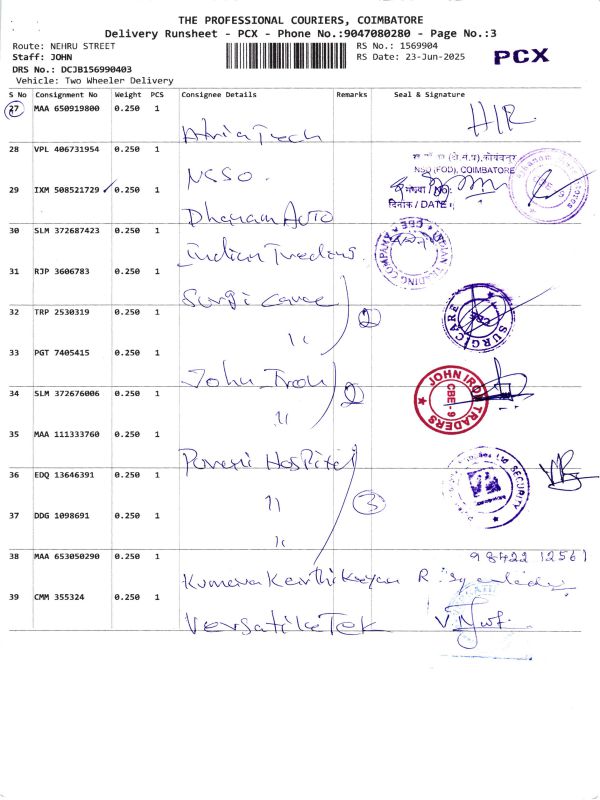 THE PROFESSIONAL COURIERS, COIMBATORE
Delivery Runsheet - PCX - Phone No.:9047080280 - Page No.:3
Route: NEHRU STREET
Staff: JOHN
DRS No.: DCJB156990403
Vehicle: Two Wheeler Delivery
RS No.: 1569904
RS Date: 23-Jun-2025
PCX
S No Consignment No Weight PCS Consignee Details Remarks Seal & Signature
27 MAA 650919800 0.250 1
28 VPL 406731954 0.250 1 NSSO.
NSO (FOD), COIMBATORE
दिनांक / DATE :
29 IXM 508521729 0.250 1 Dhanam Auto
30 SLM 372687423 0.250 1 Indian Traders.
INDIAN TRADING COMPANY CBE
31 RJP 3606783 0.250 1 Surgi Care
2
32 TRP 2530319 0.250 1 "
SURGICARE CBE
33 PGT 7405415 0.250 1 John Iron
2
34 SLM 372676006 0.250 1 "
JOHN IRON TRADERS CBE - 9
35 MAA 111333760 0.250 1 Hospital
36 EDQ 13646391 0.250 1 "
3
SECURITY
37 DDG 1098691 0.250 1 "
38 MAA 653050290 0.250 1 Kumara Karthikeyan R.
98422 12561
39 CMM 355324 0.250 1 VersatileTek